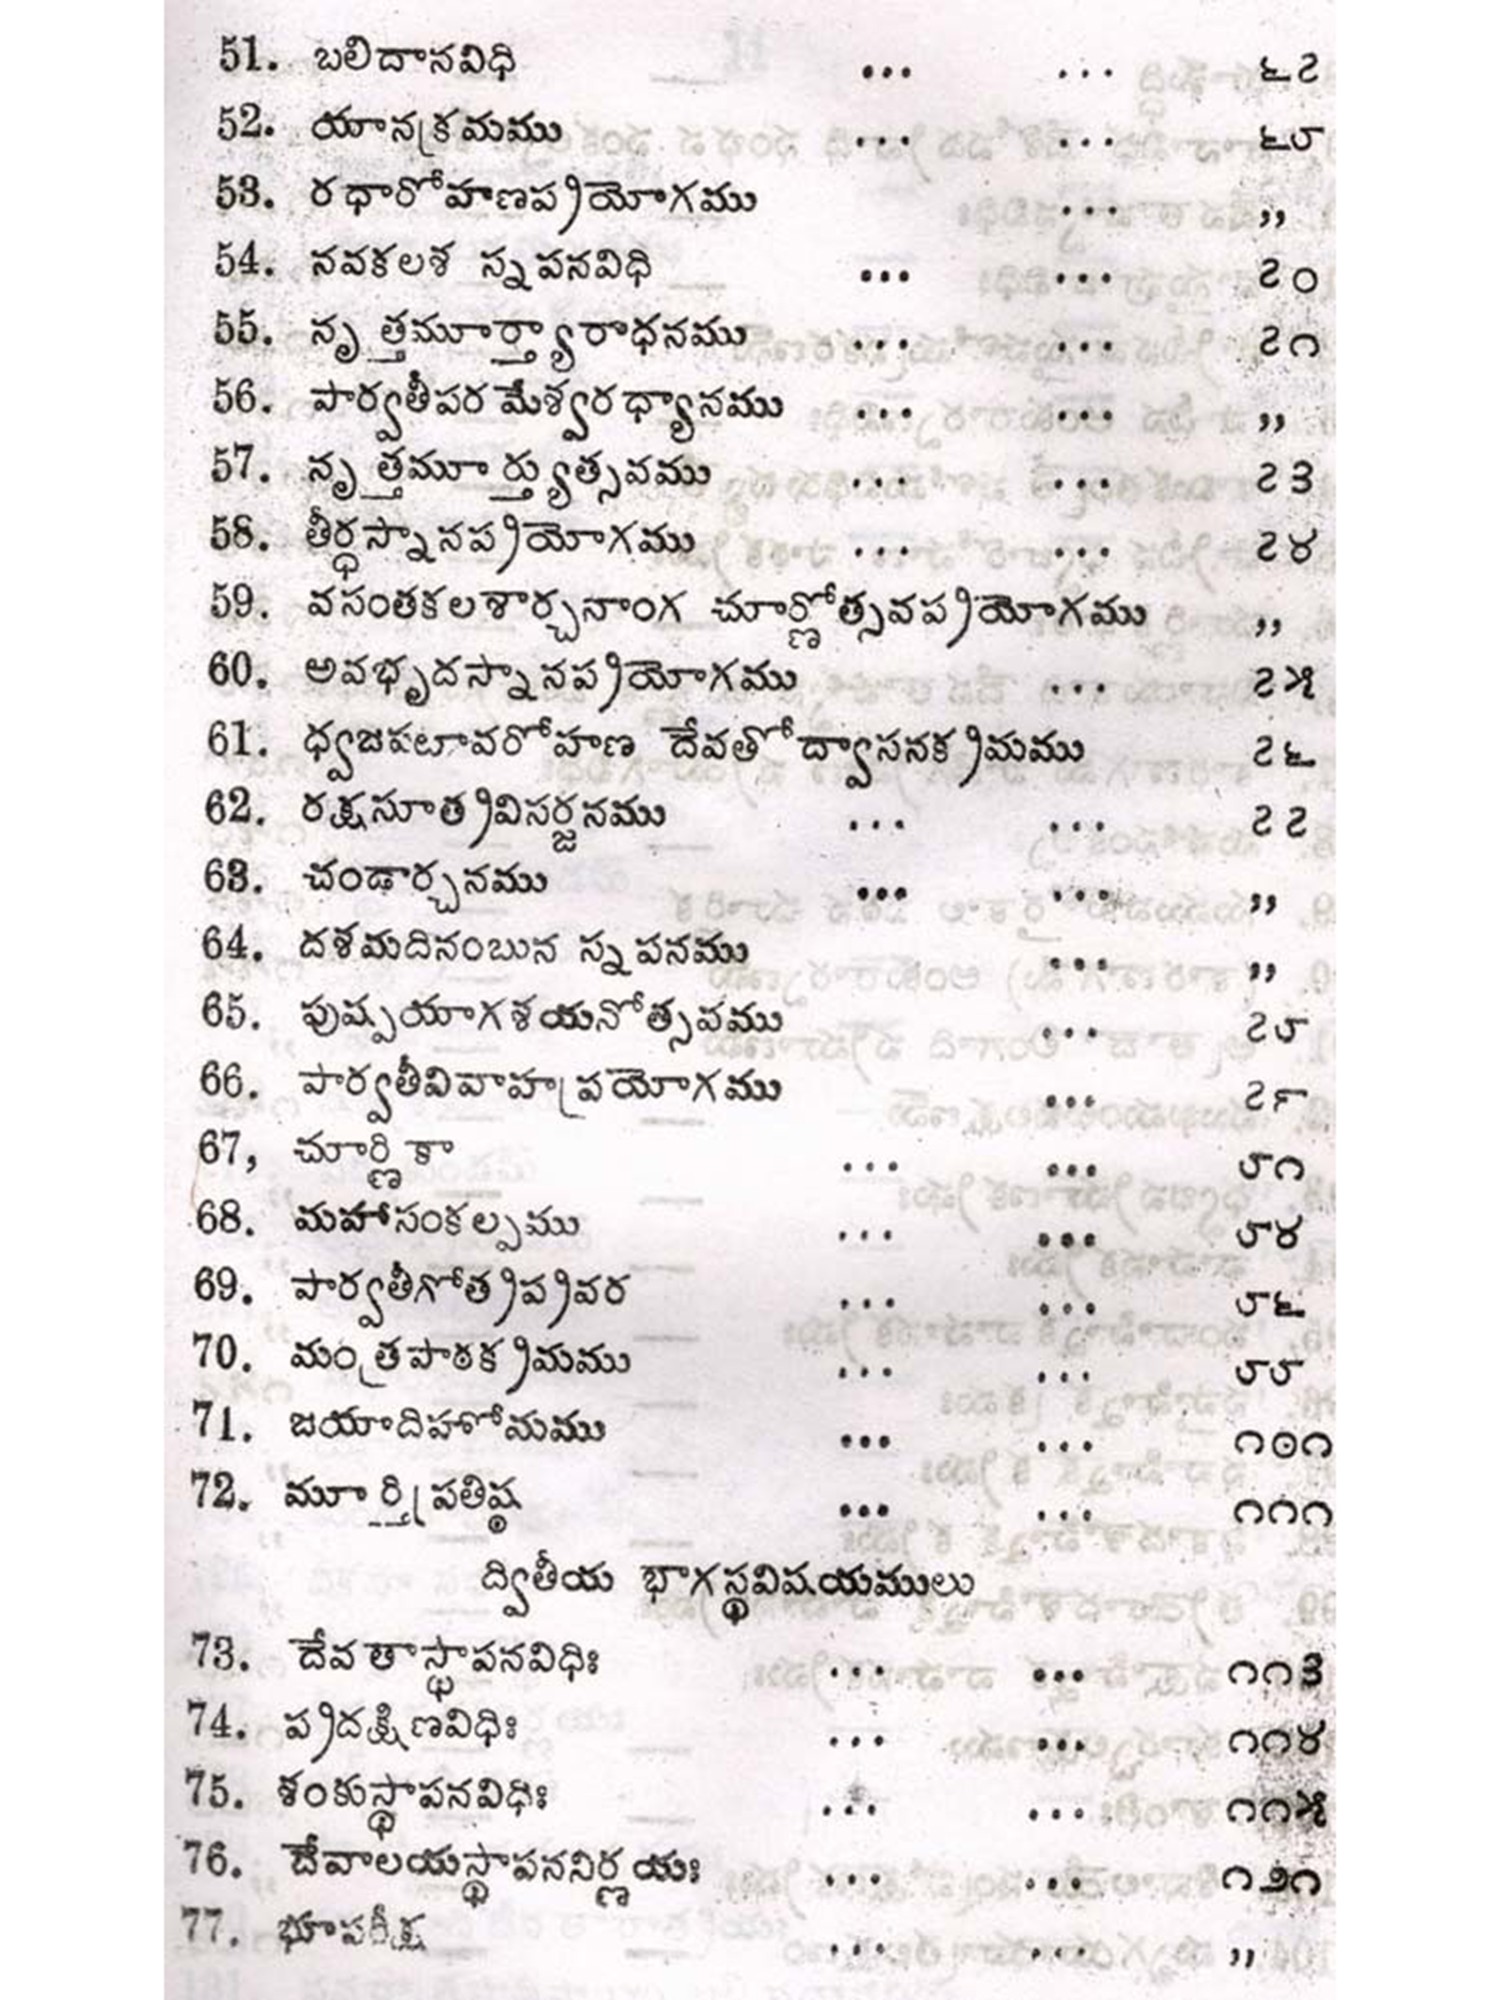 51. బలిదానవిధి ... ... ౬౭
52. యానక్రమము ... ... ౬౮
53. రథారోహణప్రయోగము ... ,,
54. నవకలశ స్నపనవిధి ... ... ౭౦
55. నృత్తమూర్త్యారాధనము ... ... ౭౧
56. పార్వతీపరమేశ్వరధ్యానము ... ... ,,
57. నృత్తమూర్త్యుత్సవము ... ... ౭౩
58. తీర్థస్నానప్రయోగము ... ... ౭౪
59. వసంతకలశార్చనాంగ చూర్ణోత్సవప్రయోగము ,,
60. అవభృదస్నానప్రయోగము ... ౭౫
61. ధ్వజపటావరోహణ దేవతోద్వాసనక్రమము ౭౬
62. రక్షసూత్రవిసర్జనము ... ... ౭౭
63. చండార్చనము ... ... ,,
64. దశమదినంబున స్నపనము ... ,,
65. పుష్పయాగశయనోత్సవము ... ౭౮
66. పార్వతీవివాహప్రయోగము ... ౭౯
67, చూర్ణికా ... ... ౮౧
68. మహాసంకల్పము ... ... ౮౪
69. పార్వతీగోత్రప్రవర ... ... ౮౬
70. మంత్రపాఠక్రమము ... ... ౮౮
71. జయాదిహోమము ... ... ౧౦౧
72. మూర్తిప్రతిష్ఠ ... ... ౧౧౧
ద్వితీయ భాగస్థవిషయములు
73. దేవతాస్థాపనవిధిః ... ... ౧౧౩
74. ప్రదక్షిణవిధిః ... ... ౧౧౪
75. శంకుస్థాపనవిధిః ... ... ౧౧౫
76. దేవాలయస్థాపననిర్ణయః ... ... ౧౨౧
77. భూపరీక్ష ... ... ,,